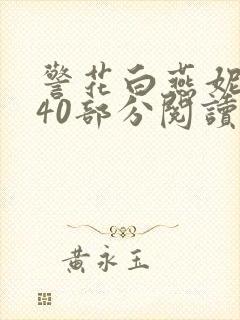 警花白燕妮
40部分閱讀
黃永玉